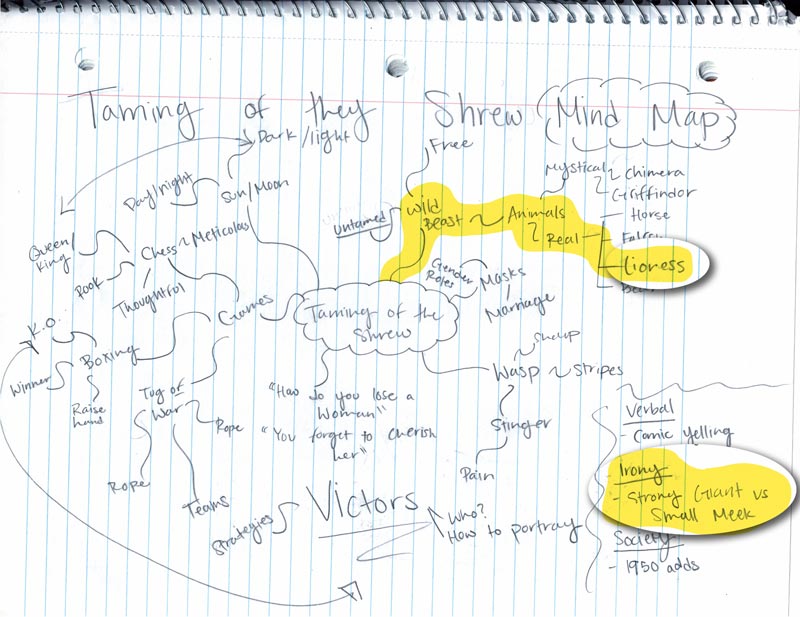 Taming of they Shrew Mind Map
Dark/light
Free
Mystical
Chimera
Griffindor
Day/night
Sun/Moon
Untamed
Wild
Beast
Animals
Real
Horse
Lioness
Queen/
King
Chess
Meticolas
Rook
Thoughtful
Gender
Roles
Masks
Marriage
Games
Taming of the
Shrew
K.O.
Boxing
Winner
Raise
hand
Tug of
War
Rope
Rope
Teams
"How do you lose a
Woman"
"You forget to cherish
her"
Wasp
Stripes
Stinger
Pain
Strategies
Victors
Who?
How to portray
Verbal
- Comic yelling
Irony
- Strong Giant vs
Small Meek
Society
- 1950 adds